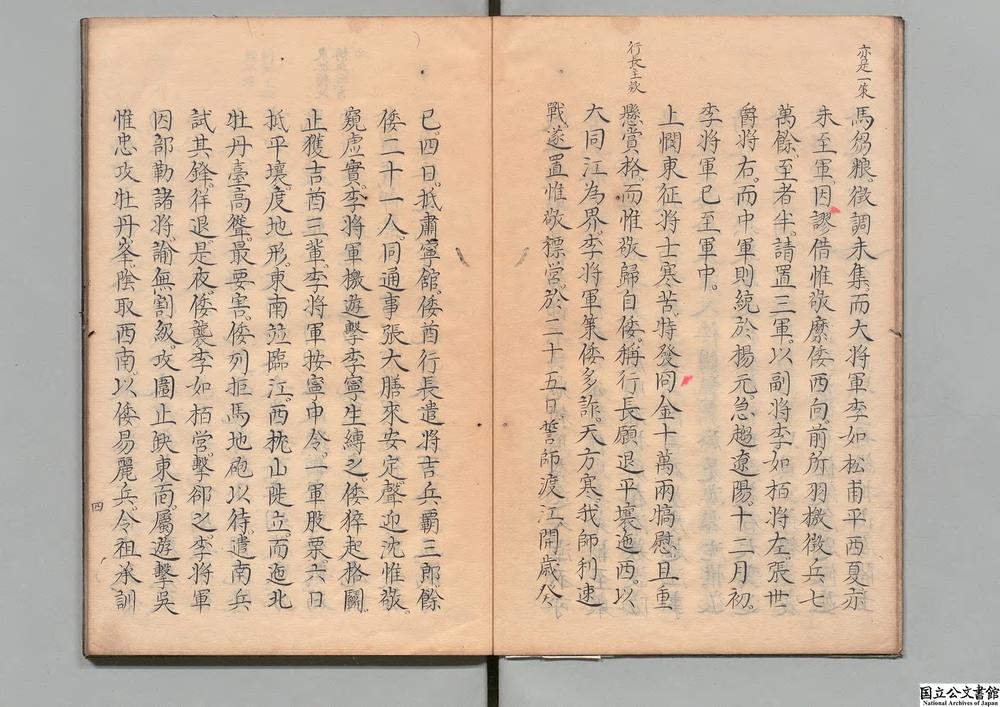 亦是一策
馬芻粮徵調未集而大將軍李如松甫平西夏亦
未至軍因謬借惟敬縻倭西向前所羽檄徵兵七
萬餘至者半請置三軍以副將李如栢將左張世
爵將右而中軍則統於楊元急趨遼陽十二月初
李將軍已至軍中
行長主欵
上憫東征將士寒苦特發冏金十萬兩犒慰且重
懸賞格而惟敬歸自倭稱行長願退平壤迤西以
大同江為界李將軍策倭多詐天方寒我師利速
戰遂置惟敬標營於二十五日誓師渡江開歲癸
巳四日抵肅寧館倭酋行長遣將吉兵覇三郎餘
倭二十一人同通事張大膳來安定聲迎沈惟敬
窺虛實李將軍檄遊擊李寧生縛之倭猝起格鬬
止獲吉酋三軰李將軍按寧申令一軍股栗六日
抵平壤度地形東南竝臨江西桃山陡立而迤北
牡丹臺高聳最要害倭列拒馬地砲以待遣南兵
試其鋒徉退是夜倭襲李如栢營擊卻之李將軍
因部勒諸將諭無割級攻圍止缺東面屬遊擊吳
惟忠攻牡丹峯陰取西南以倭易麗兵令祖承訓
四
国立公文書館
National Archives of Japan